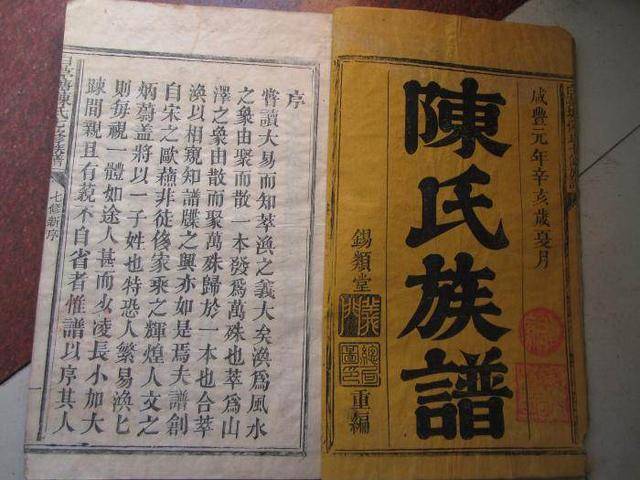 咸豐元年辛亥歲夏月
陳氏族譜
錫類堂
義門
重編
序
嘗讀大易而知萃渙之義大矣渙爲風水
之象由聚而散一本發爲萬殊也萃爲山
澤之象由散而聚萬殊歸於一本也合萃
渙以相窺知譜牒之興亦如是焉夫譜創
自宋之歐蘓非徒侈家乘之輝煌人文之
炳蔚盖將以一子姓也特恐人繁易渙匕
則每視一體如途人甚而少凌長小加大
踈間親且有藐不自省者惟譜以序其人
七修新序